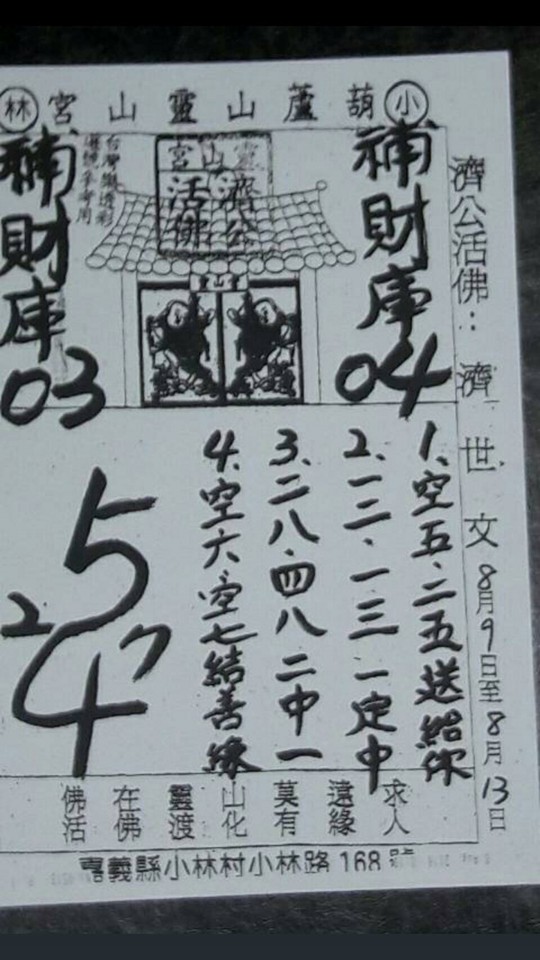 小葫蘆山靈山宮林
濟公活佛：濟世文8月9日至8月13日
補財庫04
靈山宮
濟公活佛
靈山宮
台灣樂透彩
選號參考用
補財庫03
1、空五、二五送給你
2、一二、一三一定中
3、二八、四八二中一
4、空六、空七結善緣
5
2 7
4
佛在靈山莫遠求
活佛渡化有緣人
嘉義縣小林村小林路168號